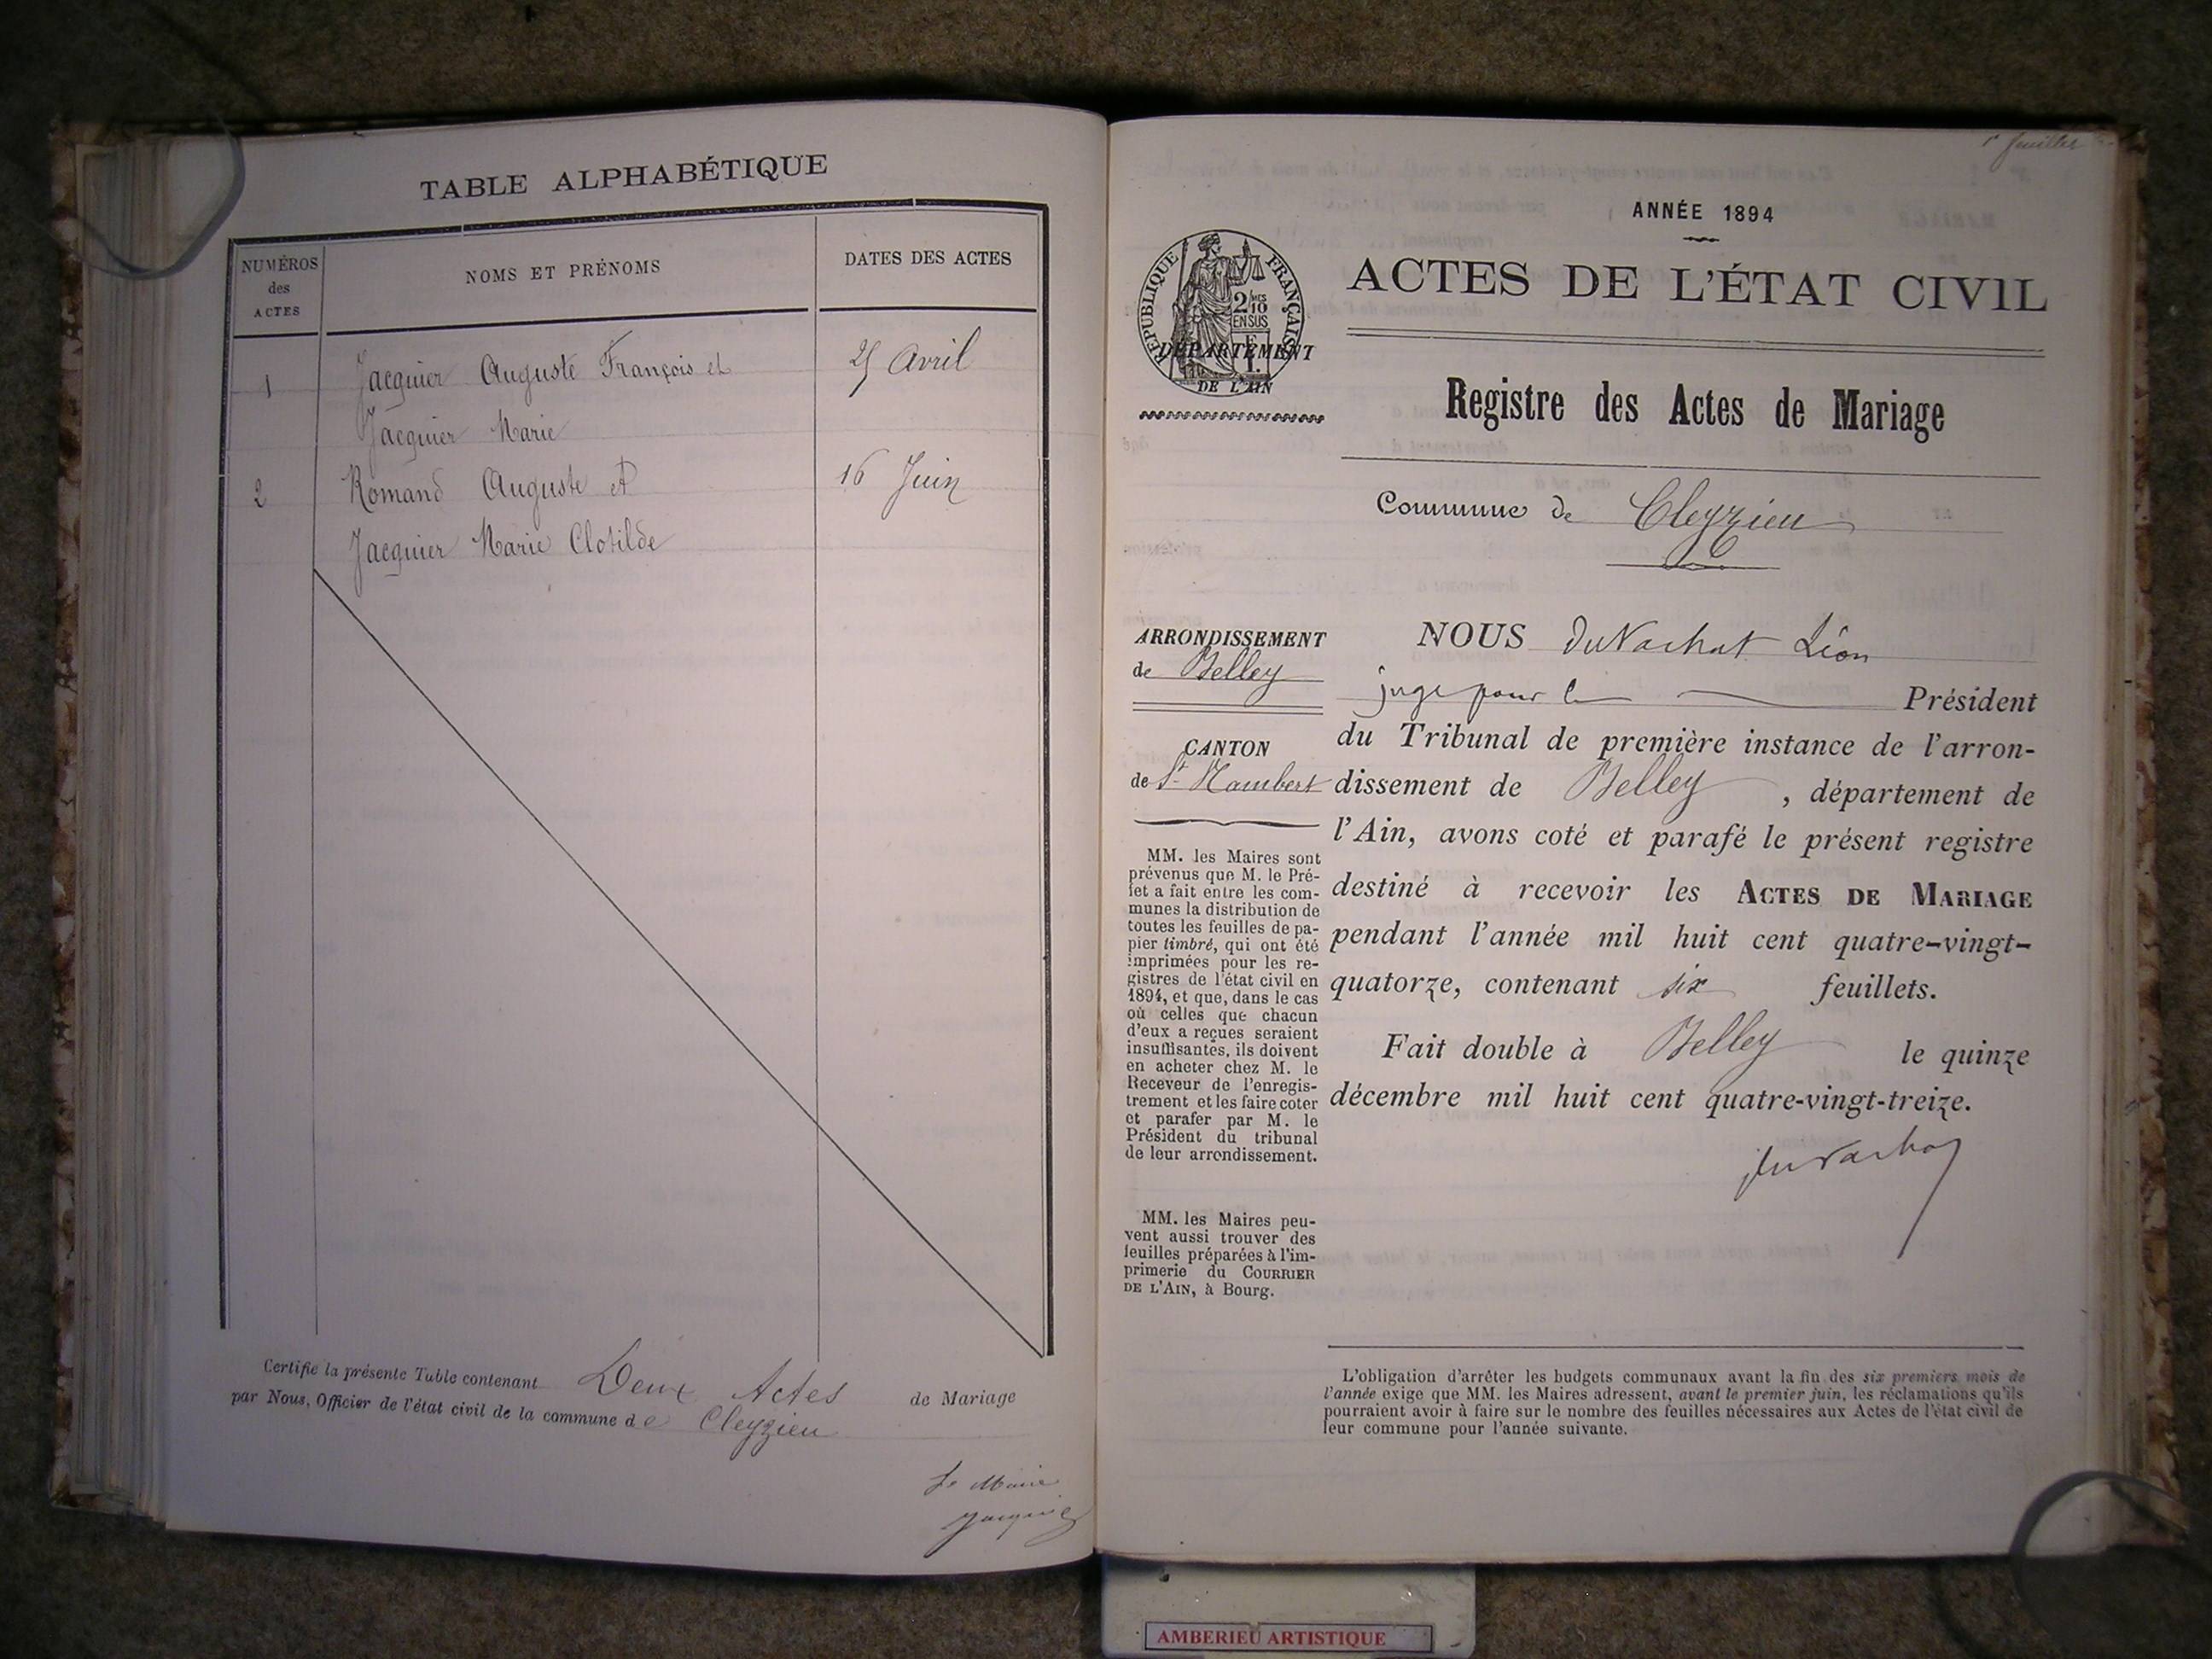 TABLE ALPHABÉTIQUE
NUMÉROS
des
ACTES
NOMS ET PRÉNOMS
DATES DES ACTES
1
Jacquier Auguste François et
25 Avril
Jacquier Marie
2
Romand Auguste et
16 Juin
Jacquier Marie Clotilde
Certifie la présente Table contenant Deux Actes de Mariage
par Nous, Officier de l'état civil de la commune de Cleyzieu
Le Maire
Jacquier
1r feuillet
ANNÉE 1894
RÉPUBLIQUE FRANÇAISE
2/10MES
EN SUS
DÉPARTEMENT
DE L'AIN
ACTES DE L'ÉTAT CIVIL
Registre des Actes de Mariage
Commune de Cleyzieu
ARRONDISSEMENT
de Belley
CANTON
de St Rambert
MM. les Maires sont
prévenus que M. le Pré-
fet a fait entre les com-
munes la distribution de
toutes les feuilles de pa-
pier timbré, qui ont été
imprimées pour les re-
gistres de l'état civil en
1894, et que, dans le cas
où celles que chacun
d'eux a reçues seraient
insuffisantes, ils doivent
en acheter chez M. le
Receveur de l'enregis-
trement et les faire coter
et parafer par M. le
Président du tribunal
de leur arrondissement.
MM. les Maires peu-
vent aussi trouver des
feuilles préparées à l'im-
primerie du COURRIER
DE L'AIN, à Bourg.
NOUS du Vachat Léon
juge pour le Président
du Tribunal de première instance de l'arron-
dissement de Belley, département de
l'Ain, avons coté et parafé le présent registre
destiné à recevoir les ACTES DE MARIAGE
pendant l'année mil huit cent quatre-vingt-
quatorze, contenant six feuillets.
Fait double à Belley le quinze
décembre mil huit cent quatre-vingt-treize.
du Vachat
L'obligation d'arrêter les budgets communaux avant la fin des six premiers mois de
l'année exige que MM. les Maires adressent, avant le premier juin, les réclamations qu'ils
pourraient avoir à faire sur le nombre des feuilles nécessaires aux Actes de l'état civil de
leur commune pour l'année suivante.
AMBERIEU ARTISTIQUE